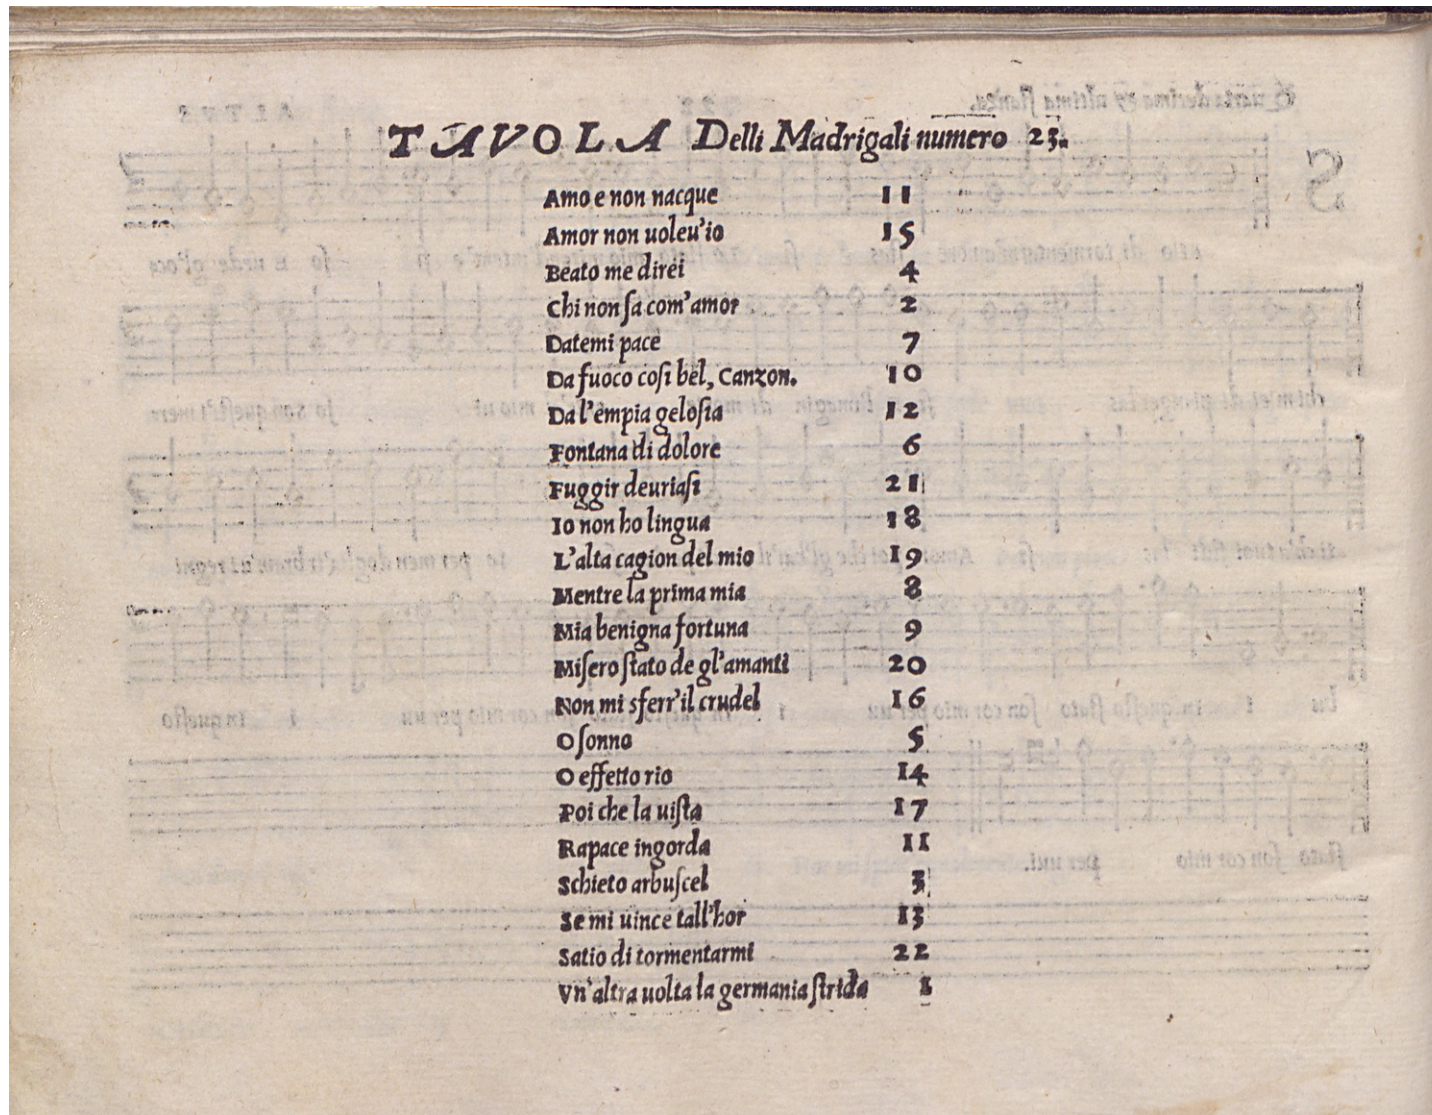 TAVOLA Delli Madrigali numero 23.
Amo e non nacque 11
Amor non uoleu'io 15
Beato me direi 4
Chi non ſa com'amor 2
Datemi pace 7
Da fuoco coſi bel, Canzon. 10
Da l'empia geloſia 12
Fontana di dolore 6
Fuggir deuriaſi 21
Io non ho lingua 18
L'alta cagion del mio 19
Mentre la prima mia 8
Mia benigna fortuna 9
Miſero ſtato de gl'amanti 20
Non mi sferr'il crudel 16
O ſonno 5
O effetto rio 14
Poi che la uiſta 17
Rapace ingorda 11
Schieto arbuſcel 3
Se mi uince tall'hor 13
Satio di tormentarmi 22
Vn'altra uolta la germania ſtrida 1